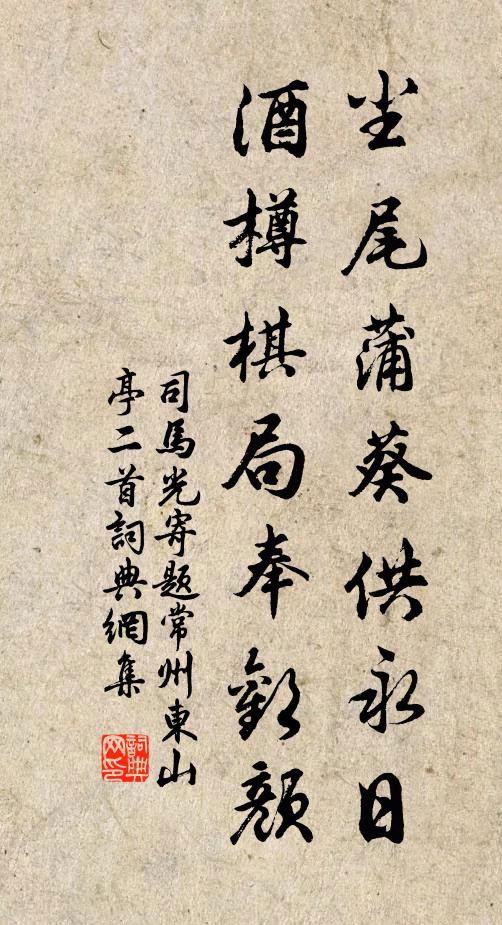 尘尾蒲葵供永日
酒樽棋局奉歡顏
司馬光寄题常州東山
亭二首詞典網集
詞典
网印